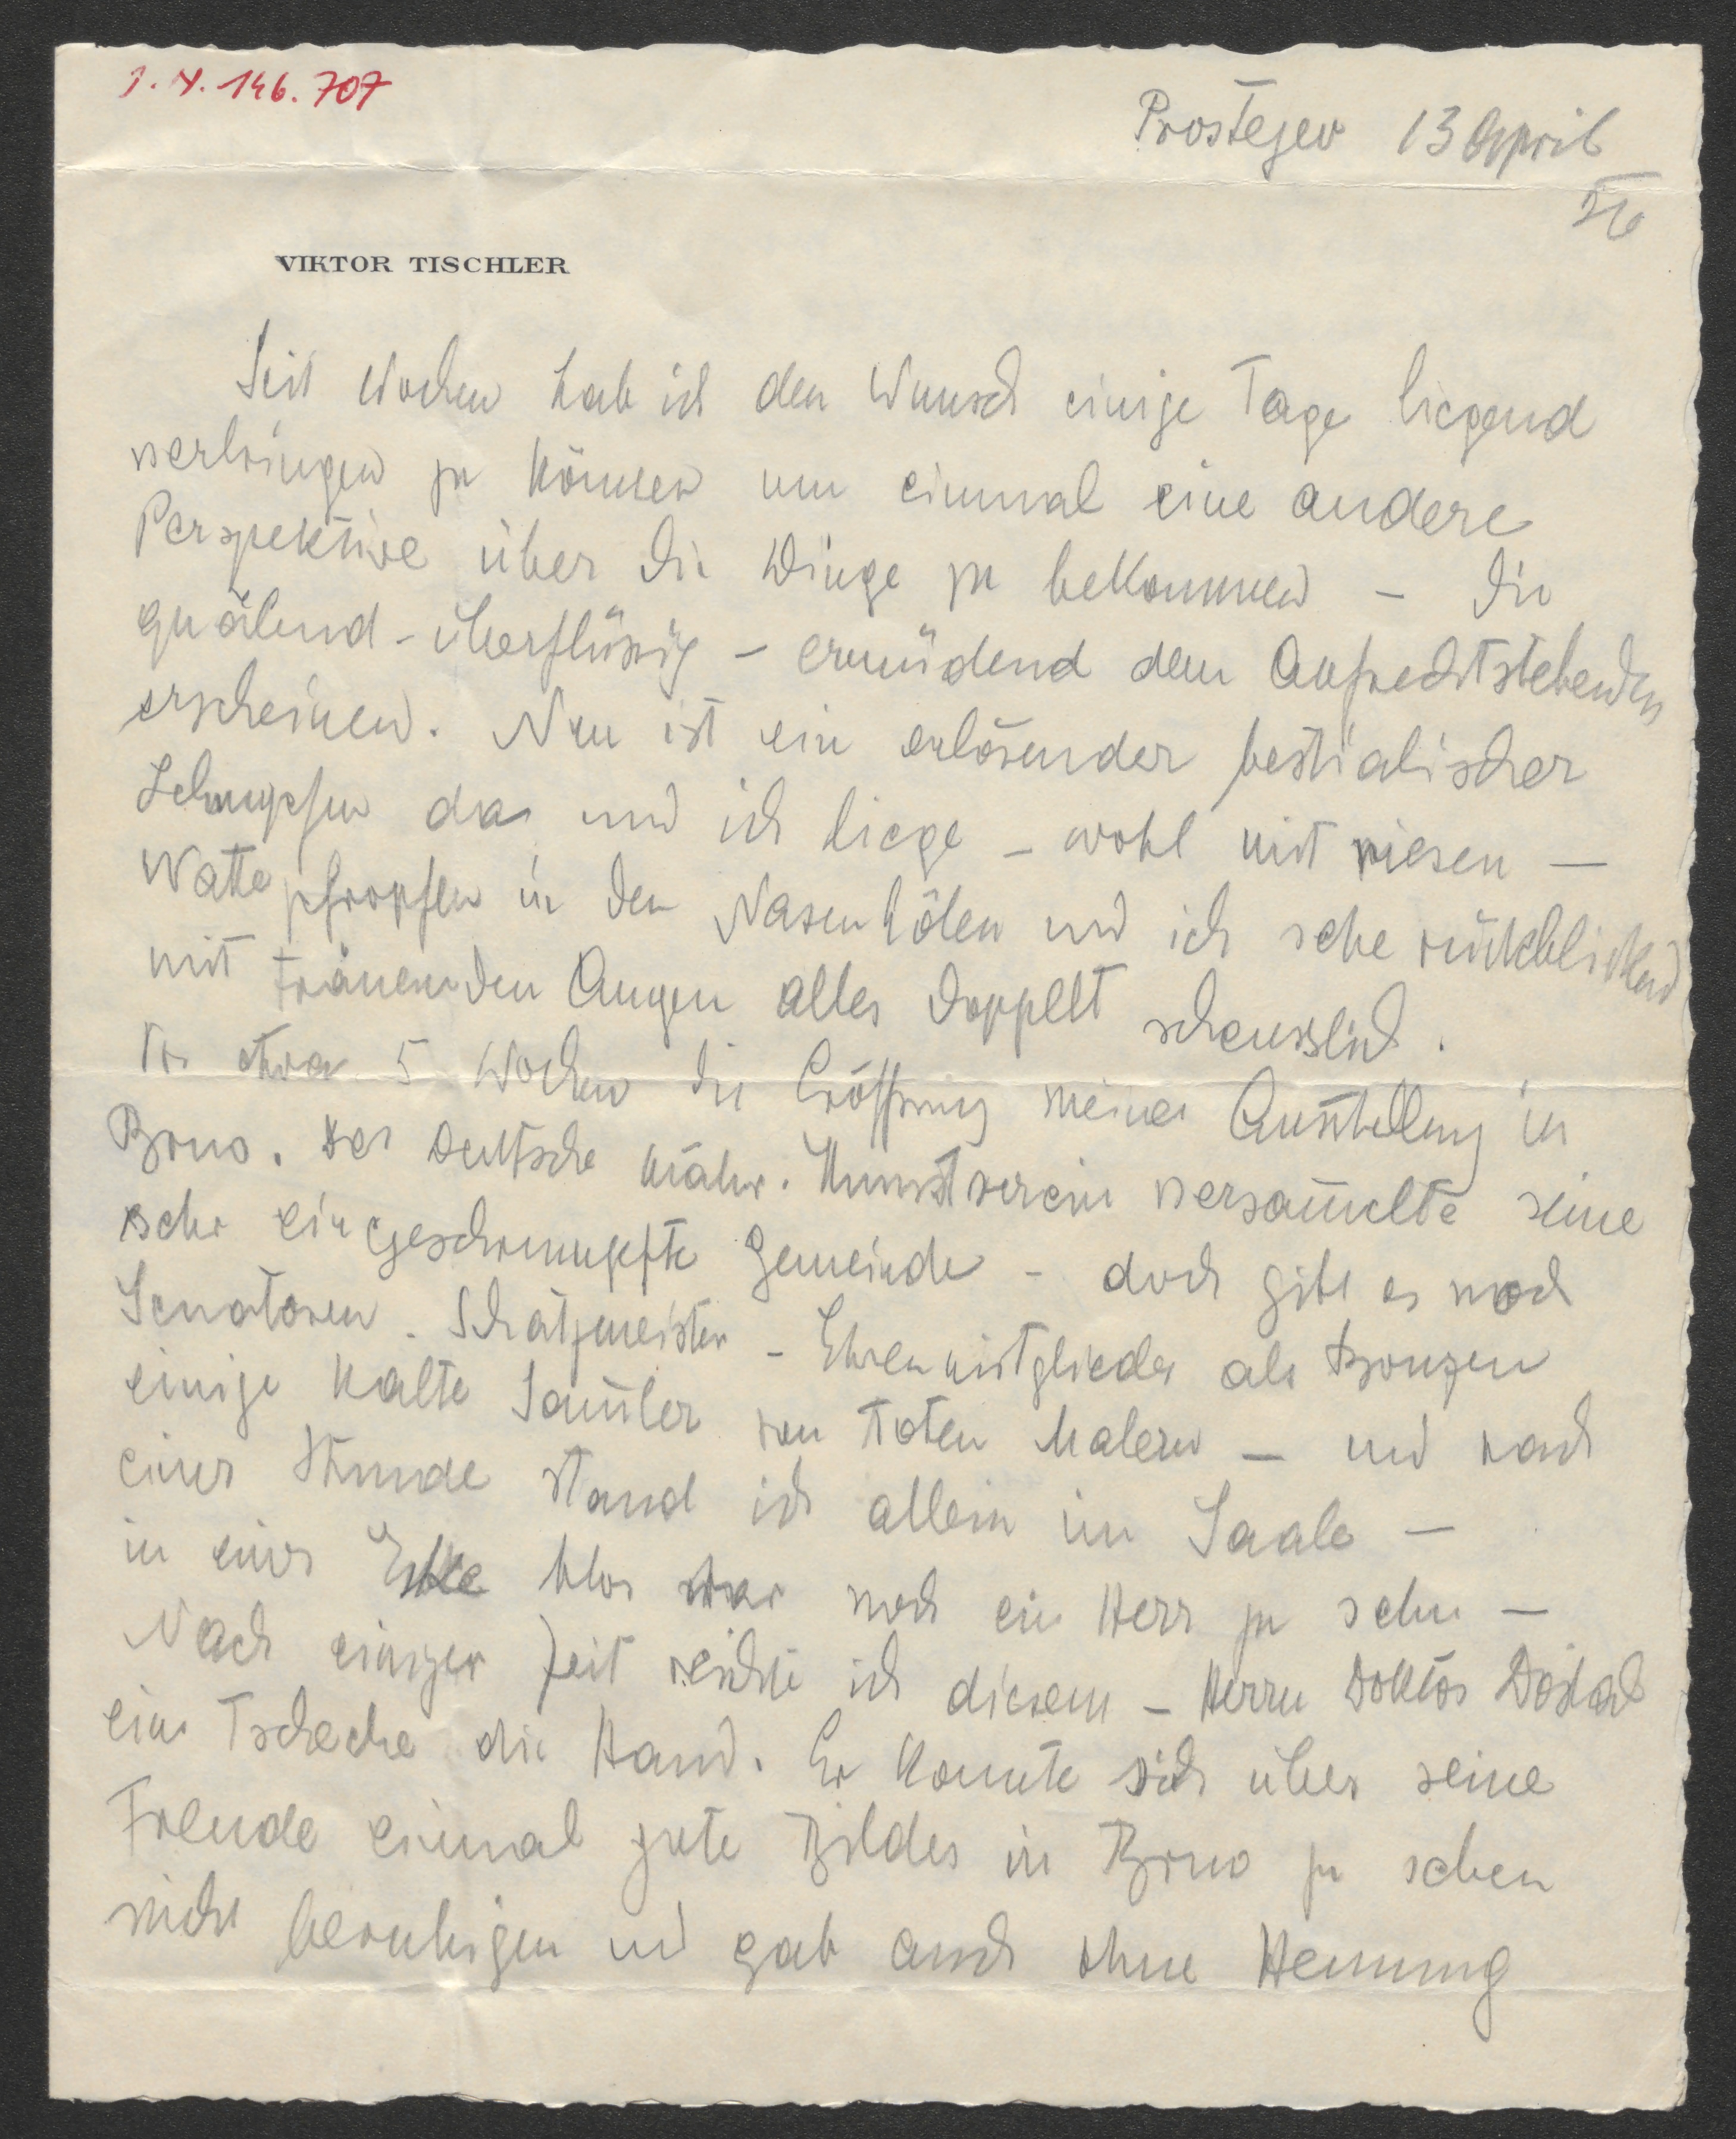 I.N. 146.707
Prostejev 13 April
26
VIKTOR TISCHLER
Seit Wochen hab ich den Wunsch einige Tage liegend
verbringen zu können um einmal eine andere
Perspektive über die Dinge zu bekommen – die
quälend – überflüssig – ermüdend dem Aufrechtstehenden
erscheinen. Nun ist ein erlösender bestialischer
Schnupfen da und ich liege – wohl mit riesen –
Wattepfropfen in den Nasenhölen und ich sehe rückblickend
mit tränenden Augen alles doppelt scheusslich.
Vor etwa 5 Wochen die Eröffnung meiner Ausstellung in
Brno. Der Deutsche mähr. Kunstverein versam̅elte seine
sehr eingeschrumpfte Gemeinde – doch gibt es noch
Senatoren – Schatzmeister – Ehrenmitglieder als Bonzen
einige kalte Sam̅ler von toten Malern – und nach
einer Stunde stand ich allein im Saale –
in einer Ecke blos war noch ein Herr zu sehn –
Nach einiger Zeit reichte ich diesem – Herrn Doktor Dostal
ein Tscheche die Hand. Er konnte sich über seine
Freude einmal gute Bilder in Brno zu sehen
nicht beruhigen und gab auch ohne Hemmung